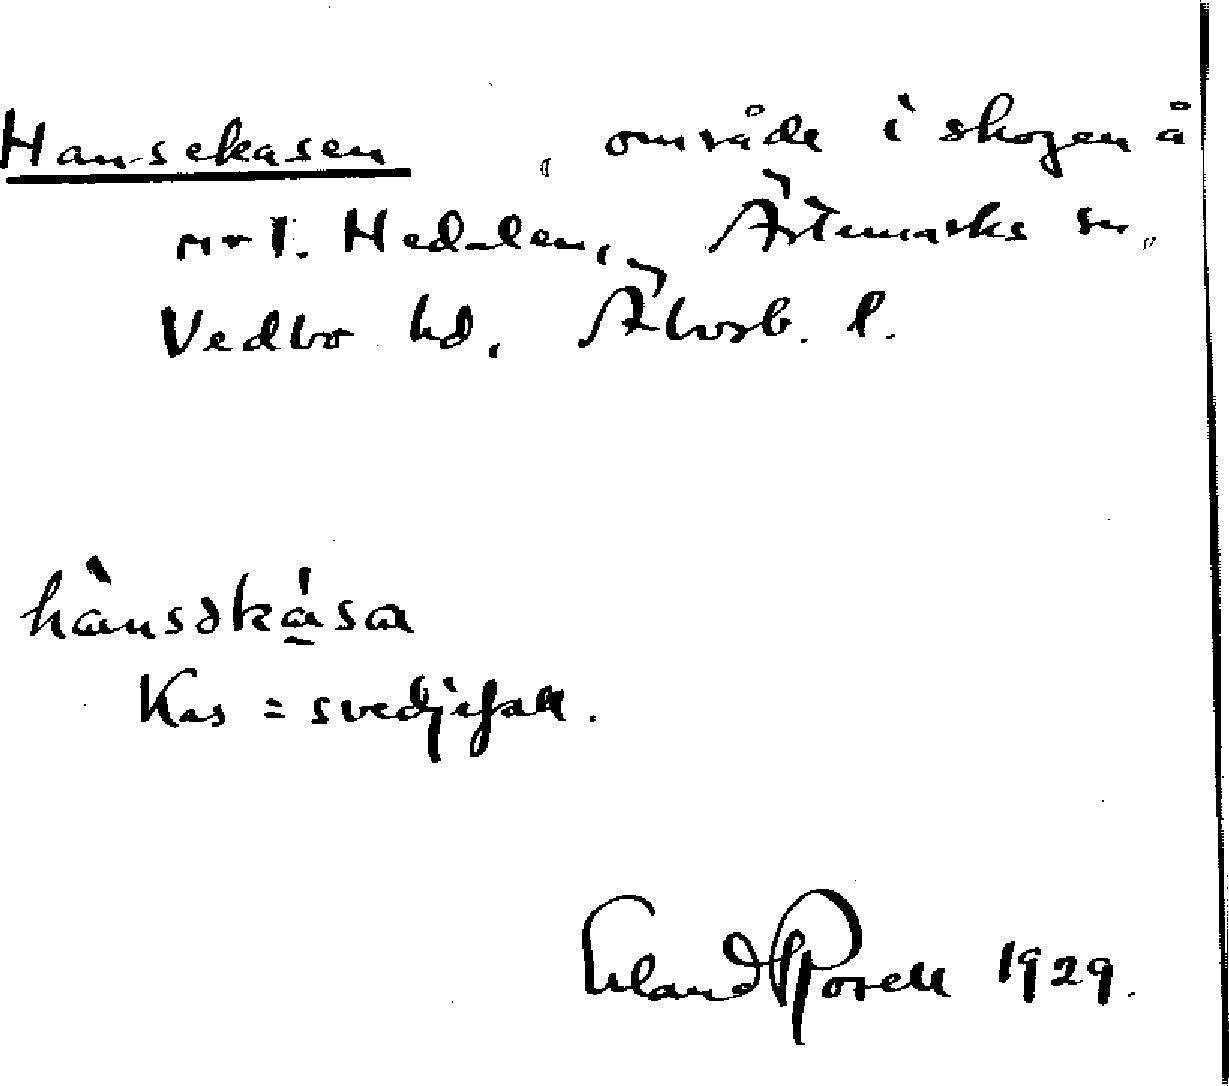 Hansekasen, område i skogen å
n:o 1. Hedalen, Ärtemarks sn,
Vedbo hd, Älvsb. l.
hànsəkása
Kas = svedjefall.
Erland Rosell 1929.